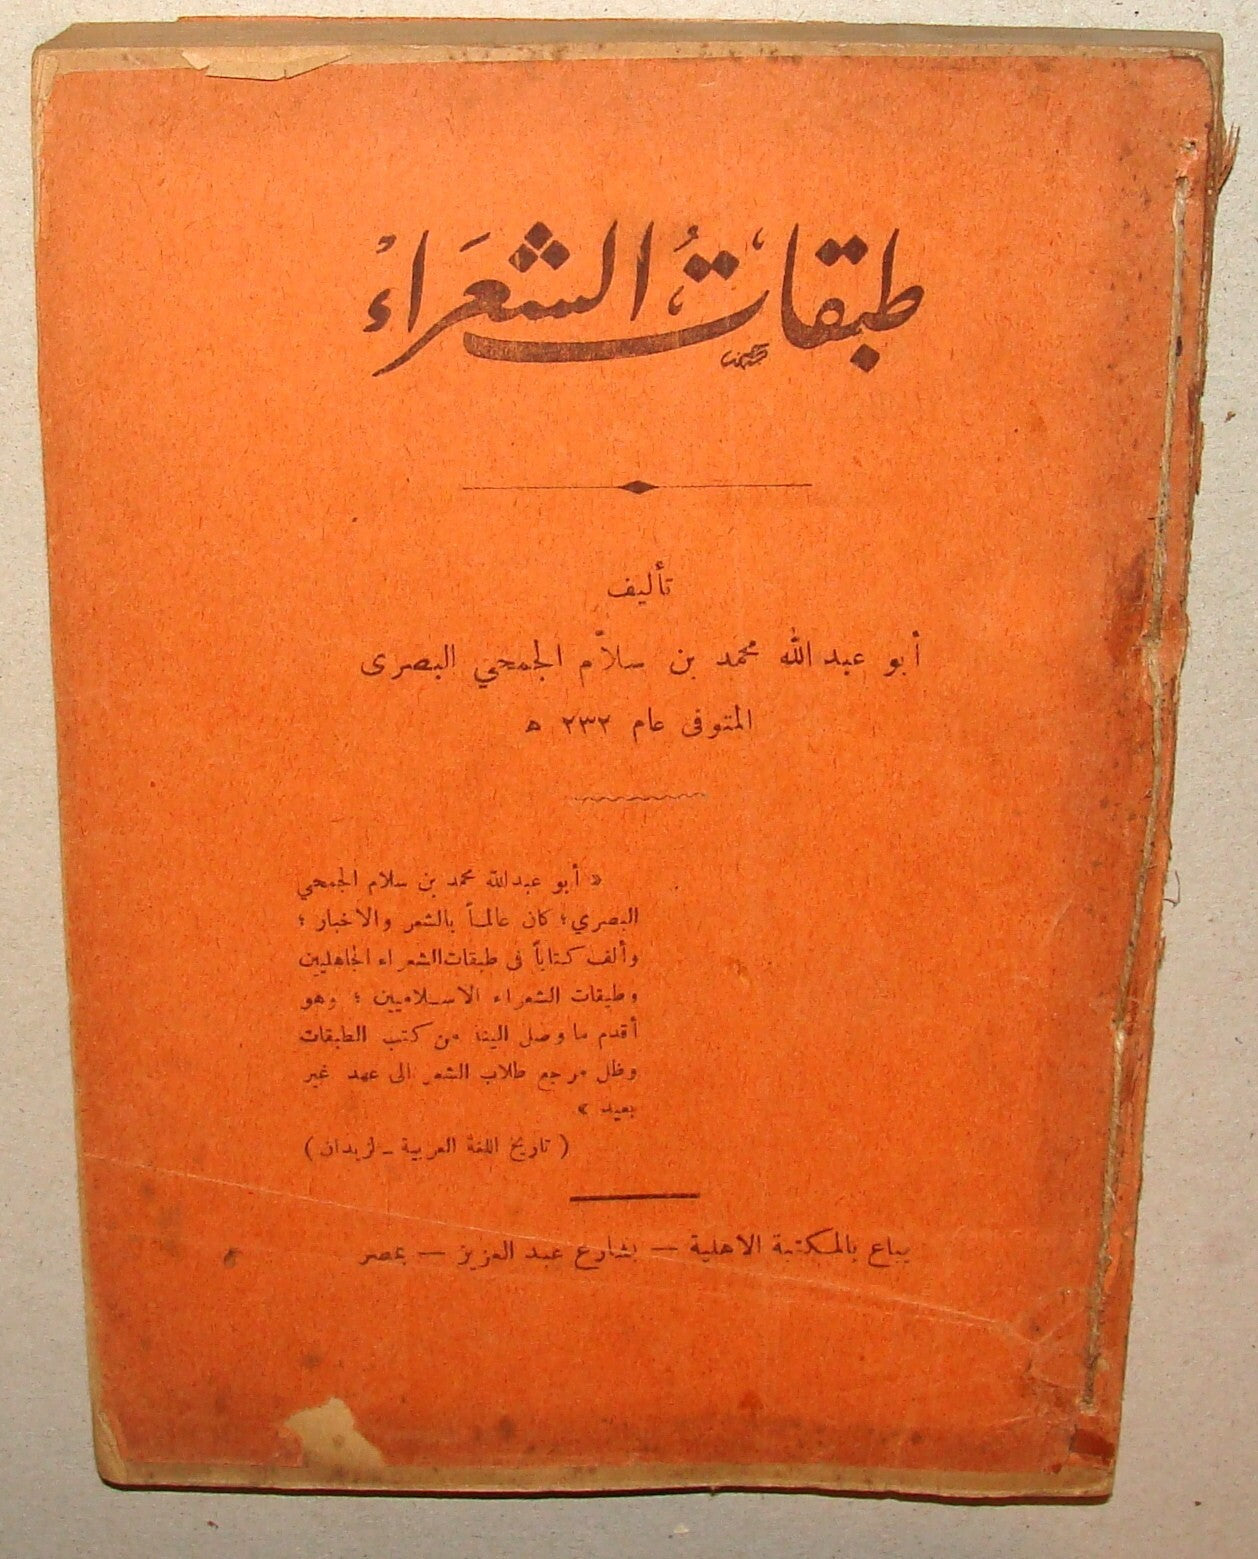 طبقات الشعراء
تأليف
أبو عبد الله محمد بن سلاّم الجمحي البصرى
المتوفى عام ٢٣٢ ه
« أبو عبدالله محمد بن سلام الجمحي
البصري ؛ كان عالماً بالشعر والاخبار ؛
وألف كتاباً فى طبقات الشعراء الجاهليين
وطبقات الشعراء الاسلاميين ؛ وهو
أقدم ما وصل الينا من كتب الطبقات
وظل مرجع طلاب الشعر الى عهد غير
بعيد »
( تاريخ اللغة العربية ـ لزيدان )
يباع بالمكتبة الاهلية — بشارع عبد العزيز — بمصر